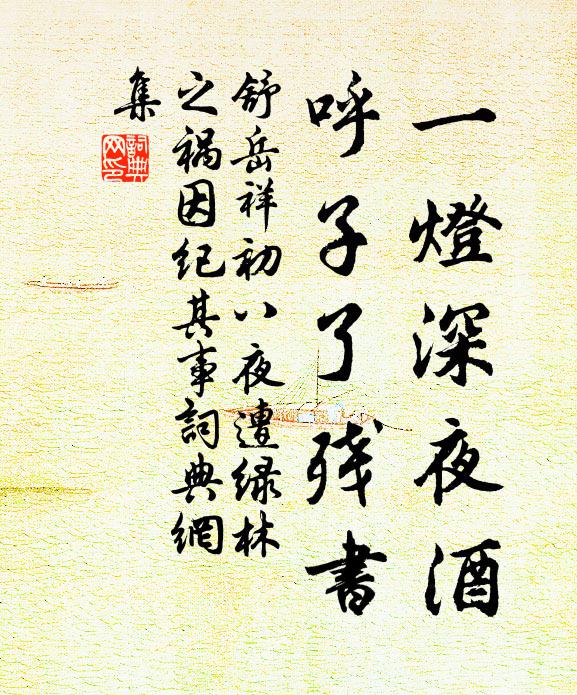 一燈深夜酒
呼子了残書
舒岳祥初八夜遭绿林
之禍因纪其事詞典網
集
詞典
网印